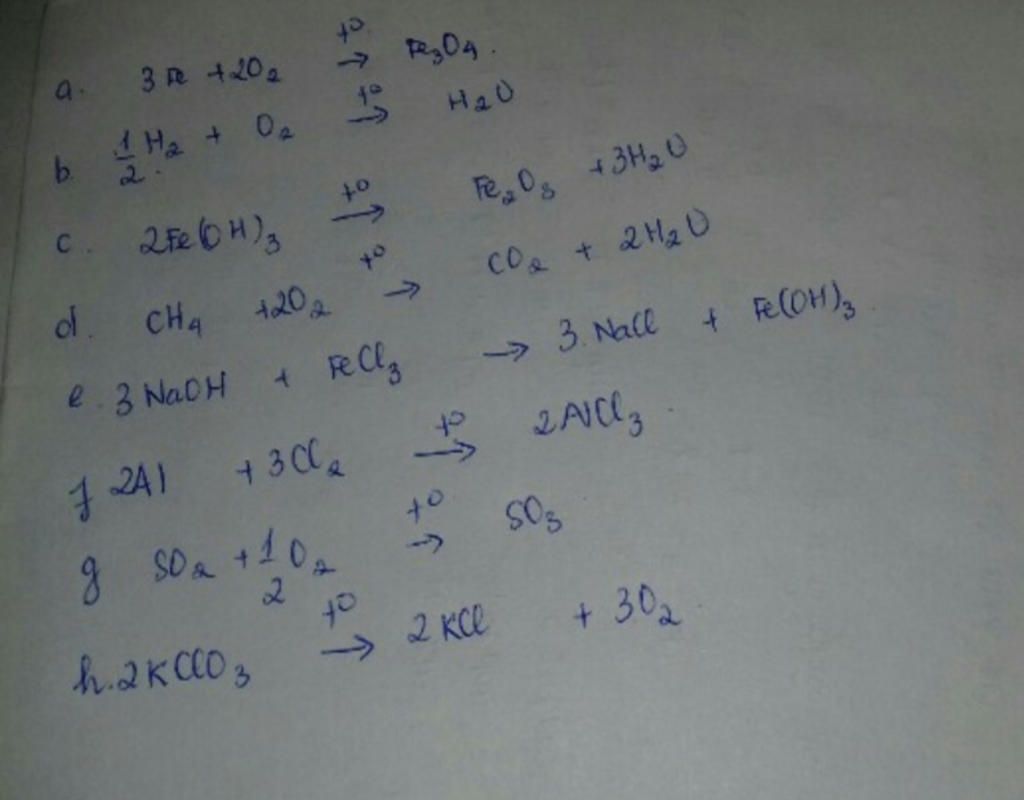 a. 3Fe + 2O₂ →(t°) Fe₃O₄.
b. 1/2 H₂ + O₂ →(t°) H₂O
c. 2Fe(OH)₃ →(t°) Fe₂O₃ + 3H₂O
d. CH₄ + 2O₂ →(t°) CO₂ + 2H₂O
e. 3NaOH + FeCl₃ → 3NaCl + Fe(OH)₃.
f 2Al + 3Cl₂ →(t°) 2AlCl₃.
g SO₂ + 1/2 O₂ →(t°) SO₃
h. 2KClO₃ →(t°) 2KCl + 3O₂